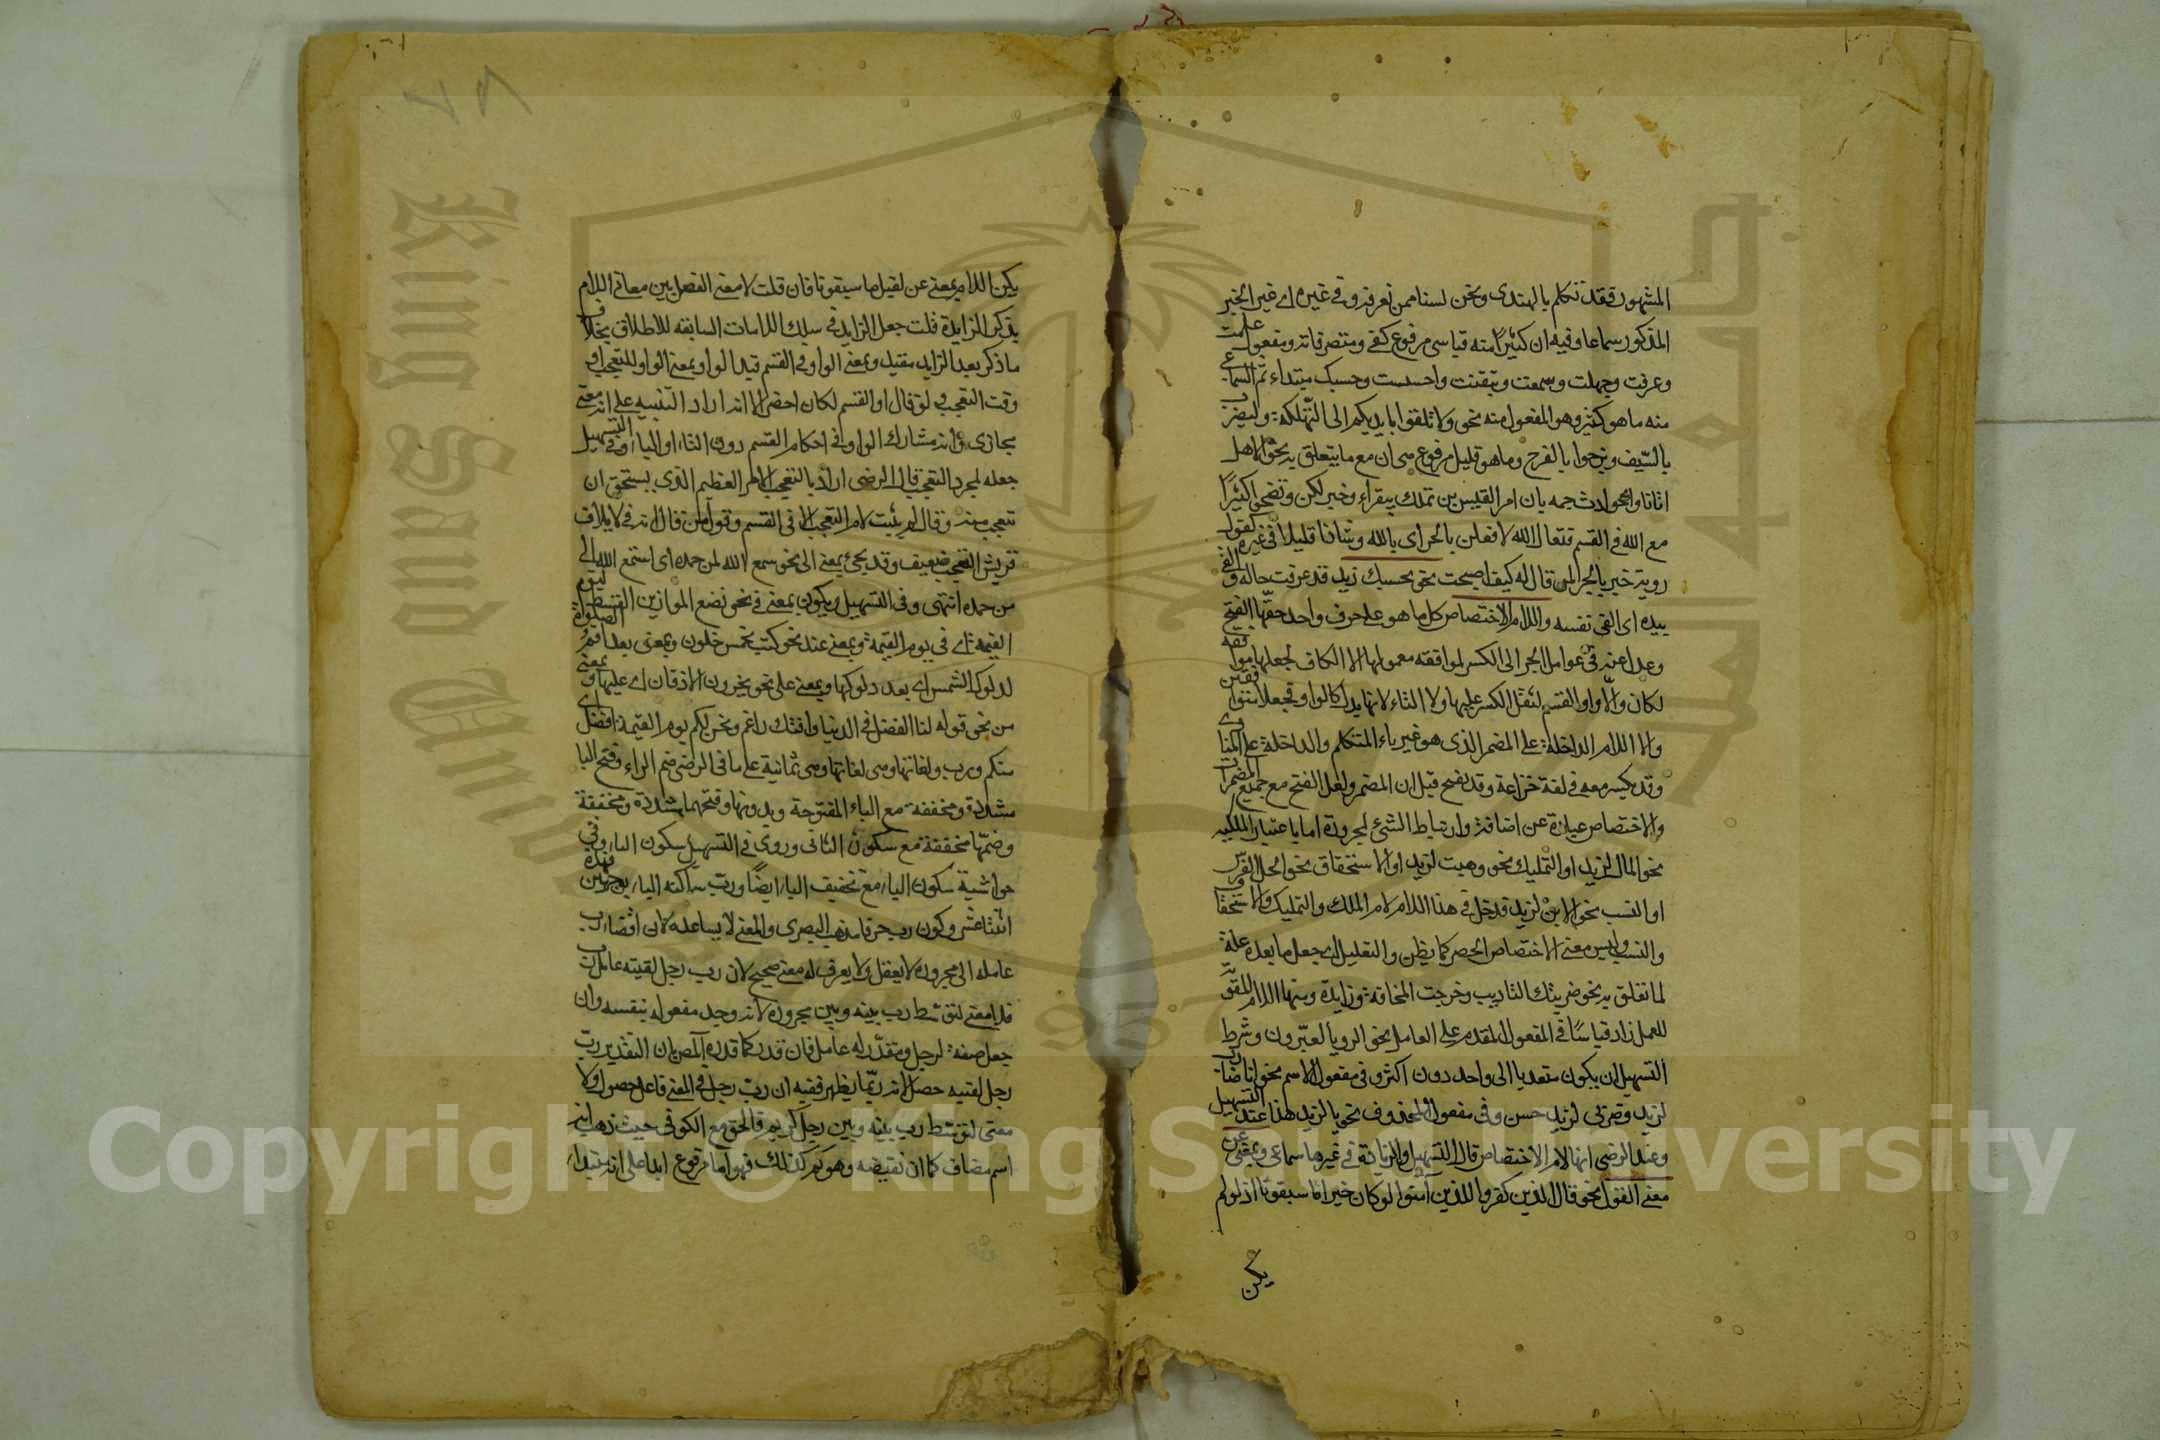 المشهور فقد تتكلم بالهندى ونحن لسنا ممن نعرفه وفى غيره اى غير الخبر
المذكور سماعا وفيه ان كثيرًا منه قياسى مرفوع كفى ومتصرفاته ومفعول علمت
وعرفت وجهلت وسمعت وتيقنت واحسست وحسبك مبتداء ثم السماعى
منه ما هو كثير وهو المفعول منه نحو ولا تلقوا بايديكم الى التهلكة وليضرب
بالسيف ونرجوا بالفرج وما هو قليل مرفوع مى ان مع ما يتعلق به نحو الاهل
اتاتا والحوادث جمه بان امر القيس بن تملك بيقراء وخبر لكن ونحو اكثيرًا
مع الله فى القسم فتقال الله لافعلن بالجر اى بالله وشاذا قليلا فى غيره كقول
روبة خير بالجر لمن قال له كيف اصبحت نحو بحسبك زيد قد عرفت حاله والقى
بيده اى القى نفسه واللام للاختصاص كل ما هو على حرف واحد حقها الفتح
وعدل عنه فى عوامل الجر الى الكسر لموافقه معمولها الا الكاف لجعلها موافقه
لكان والا واو القسم لثقل الكسر عليها ولا التاء لانها بدل الواو فجعلا متوافقين
والا اللام الداخلة على المضمر الذى هو غير ياء المتكلم والداخلة على المنادى
وقد يكسر معه فى لغة خزاعة وقد يفتح قبل ان المضمر ولعل الفتح مع جميع المضمرات
والاختصاص عبارة عن اضافة وارتباط الشئ لمجرورة اما باعتبار الملكيه
نحو المال لزيد او التمليك نحو وهبت لزيد او الاستحقاق نحو الجل للفرس
او النسب نحو الابن لزيد فدخل فى هذا اللام لام الملك والتمليك والاستحقاق
والنسب وليس معنى الاختصاص الحصر كما يظن والتعليل اى جعل ما بعده علة
لما تعلق به نحو ضربتك للتاديب وخرجت لمخافة وزايدة ومنها اللام المقويّة
للعمل زاد قياسًا فى المفعول المقدم على العامل نحو الرويا تعبرون وشرط
التسهيل ان يكون متعديا الى واحد دون اكثر وفى مفعول الاسم نحو انا ضارب
لزيد وضربى لزيد حسن وفى مفعول المحذوف نحو يا لزيد هذا عند التسهيل
وعند الرضى انها لام الاختصاص قال التسهيل والزيادة فى غيرها سماعى وبمعنى عن
معنى القول نحو قال الذين كفروا للذين آمنوا لو كان خيرا ما سبقونا اذ لو لم
يكن
يكن اللام بمعنى عن لقيل ما سبقوتا فان قلت لا معنى الفصل بين معانى اللام
بذكر الزايدة قلت جعل الزايد فى سلك اللامات السابقه للاطلاق بخلاف
ما ذكر بعد الزايد مقيد وبمعنى الواو فى القسم قيد الواو بمعنى الواو للتعجب اى
وقت التعجب ولو قال او القسم لكان احضر الا انه اراد التنبيه على انه معنى
مجازى وانه مشارك الواو فى احكام القسم دون التاء او الباء وفى التسهيل
جعله لمجرد التعجب قال الرضى اراد بالتعجب الامر العظيم الذى يستحق ان
تتعجب منه وقال لم يثبت لام التعجب الا فى القسم وقول من قال انه فى لايلاف
قريش التعجب ضعيف وقد يجئ بمعنى الى نحو سمع الله لمن حمده اى استمع الله الى
من حمده انتهى وفى التسهيل ويكون بمعنى فى نحو نضع الموازين القسط ليوم
القيمة اى فى يوم القيمة وبمعنى عند نحو كتب لخمس خلون وبمعنى بعد اقم الصلوة
لدلوك الشمس اى بعد دلوكها وبمعنى على نحو يخرون للاذقان اى عليها وبمعنى
من نحو قوله لنا الفضل فى الدنيا وانفك راغم ونحن لكم يوم القيمة افضل اى
منكم ورب ولغاتها وهى لغاتها وهى ثمانية على ما فى الرضى ضم الراء وفتح البا
مشددة ومخففة مع الباء المفتوحة وبدونها وفتحهما مشددة ومخففة
وضمها مخففة مع سكون الثانى وروى فى التسهيل سكون الباء وفى
حواشية سكون الباء مع تخفيف الباء ايضًا وربّ ساكنه الباء بوجهين فهذه
اثنتا عشر وكون رب حرفا مذهب البصرى والمعنى لا يساعده لان افضاء رب
عامله الى مجروره لا يعقل ولا يعرف له معنى صحيح لان رب رجل لقيته عامل رب
فلا معنى لتوسط رب بينه وبين مجروره لانه وجد مفعوله بنفسه وان
جعل صفة لرجل ومقدّر له عامل فان قدر كما قدره المص بان التقدير ربّ
رجل لقيته حصل انه ربّما يظهر ففيه ان ربّ رجل فى المعنى فاعل حصول ولا
معنى لتوسط رب بينه وبين رجل كريم فالحق مع الكوفى حيث ذهب انه
اسم مضاف كما ان نقيضه وهو كم كذلك فهو اما مرفوع ابدا على انه مبتداء